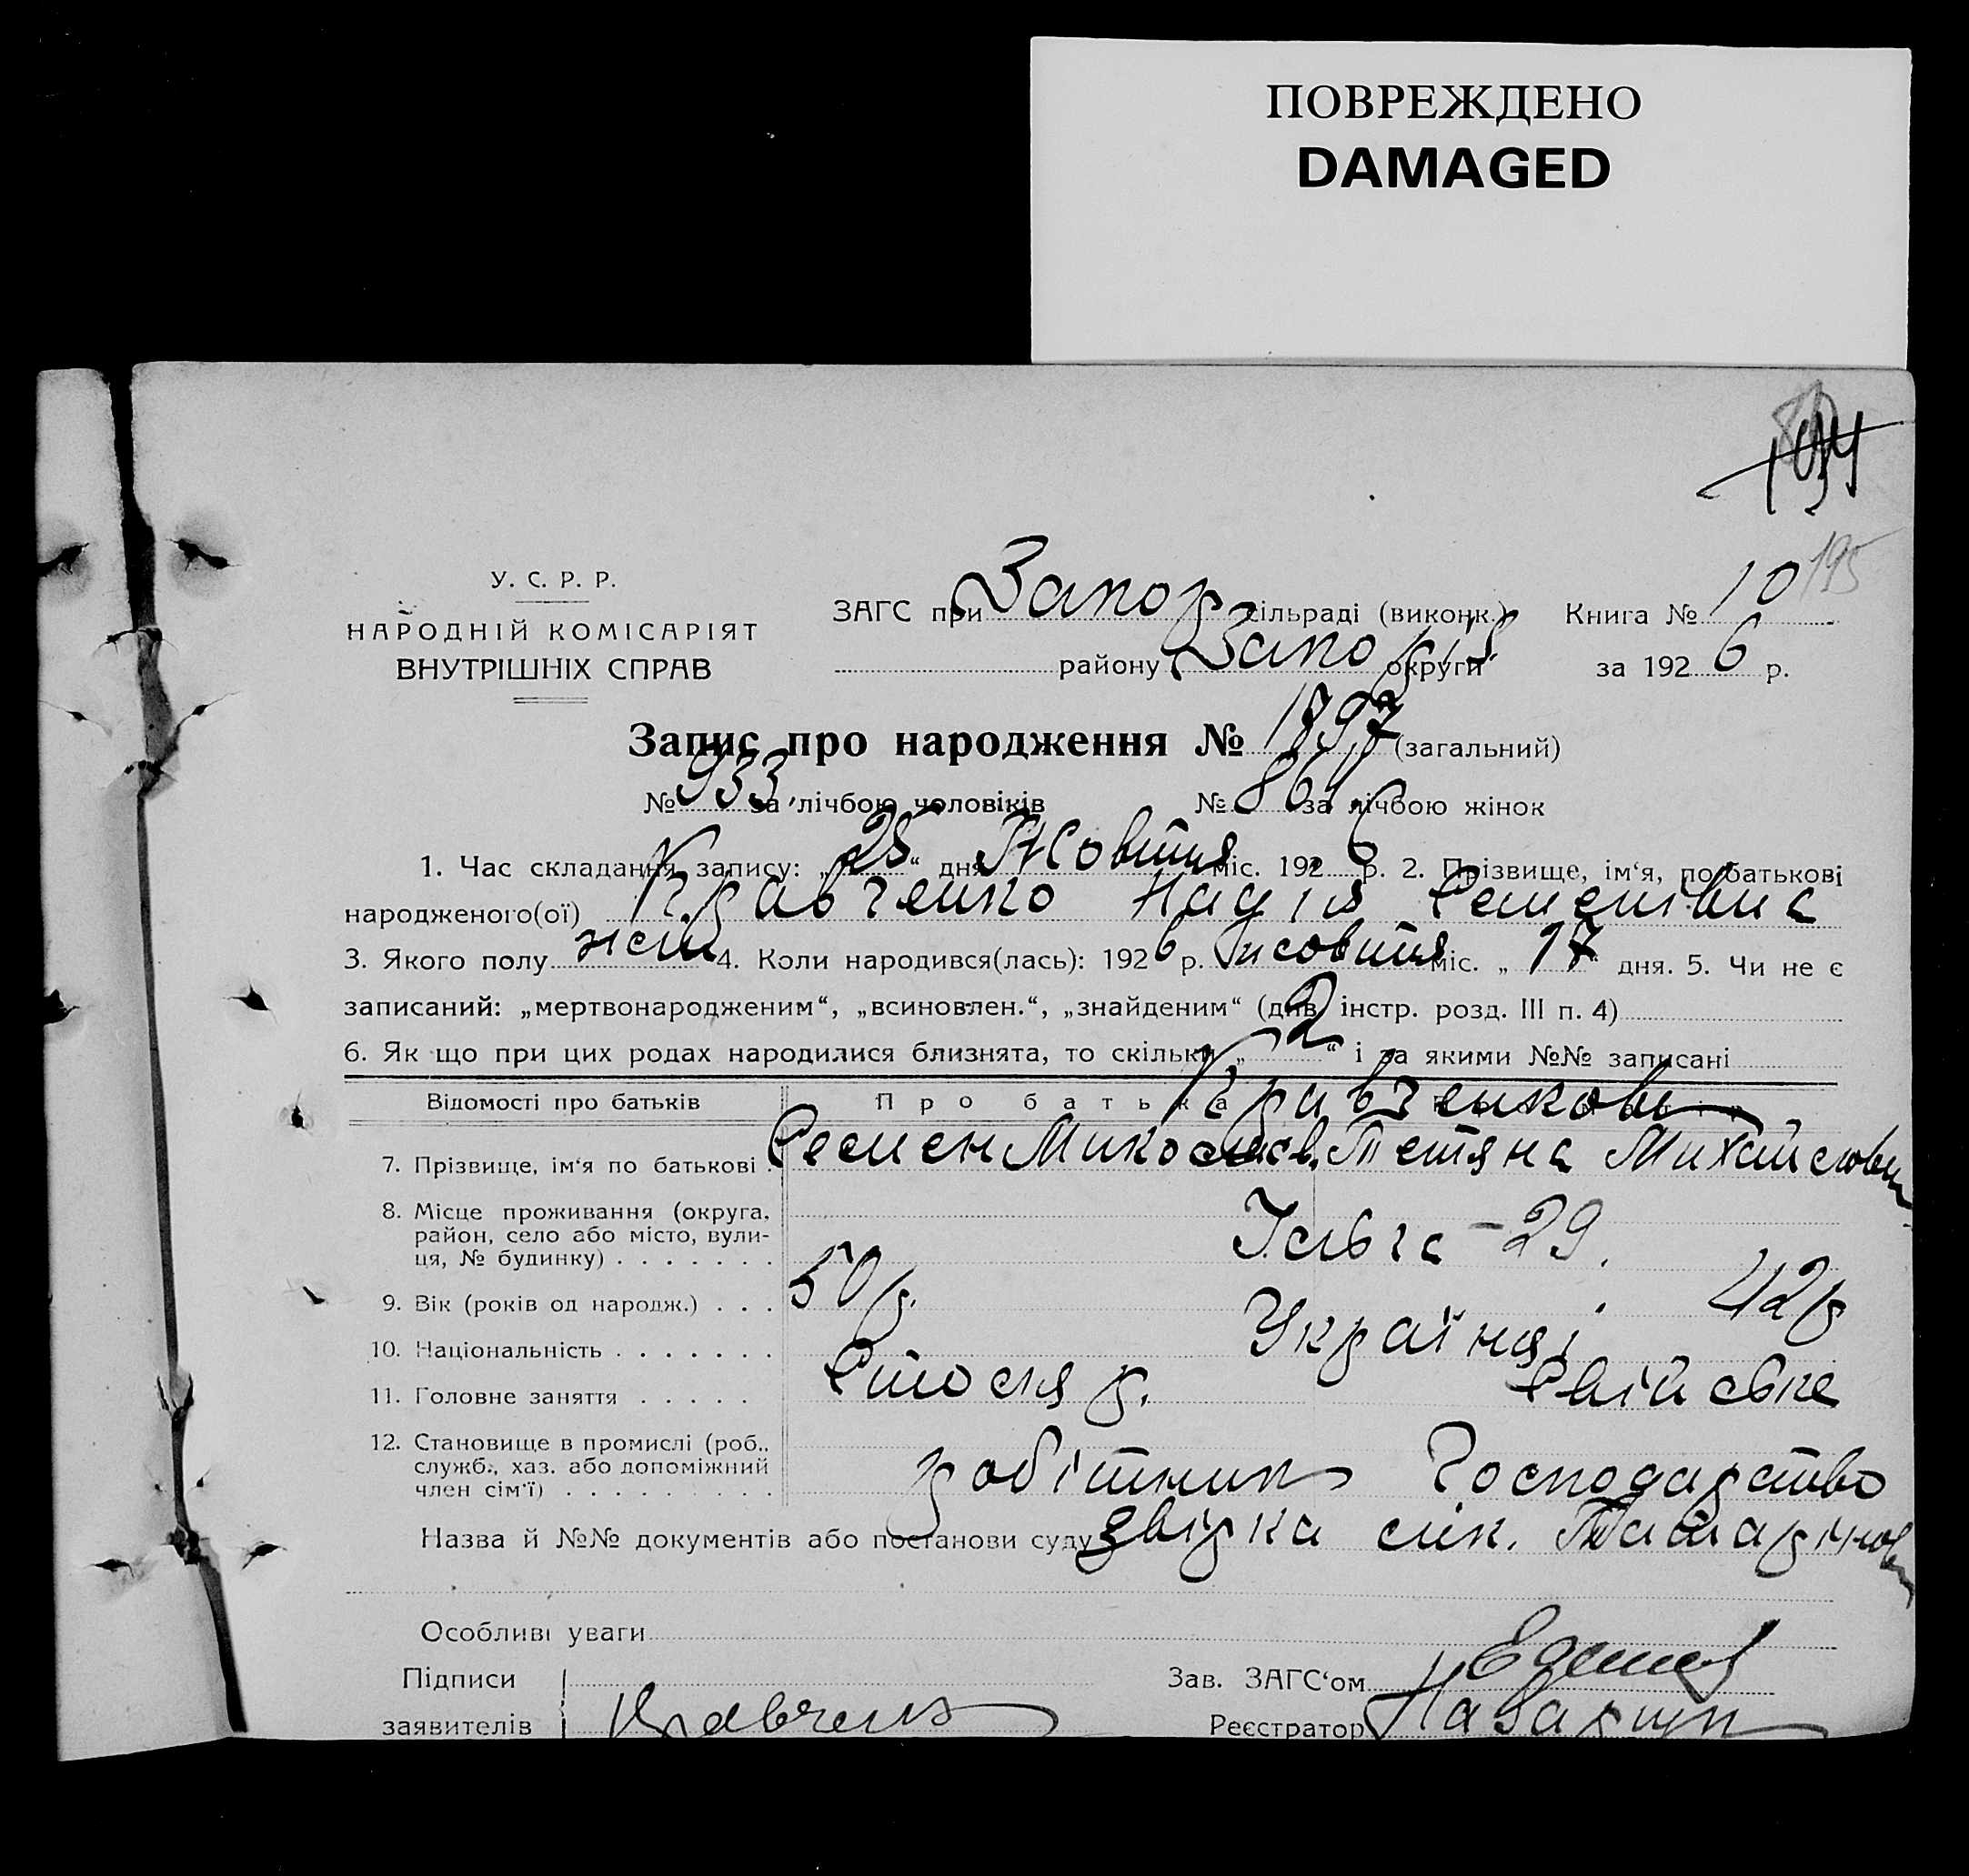 ПОВРЕЖДЕНО
DAMAGED
194
195
У. С. Р. Р.
НАРОДНІЙ КОМІСАРІЯТ
ВНУТРІШНІХ СПРАВ
ЗАГС при Запор сільраді (виконк.) Книга № 10
району Запоріз округи за 1926 р.
Запис про народження № 1797 (загальний)
№ 933 за лічбою чоловіків № 864 за лічбою жінок
1. Час складання запису: „25“ дня Жовтня міс. 1926 р. 2. Прізвище, ім‘я, по батькові
народженого(ої) Кравченко Надія Семенівна
3. Якого полу жін 4. Коли народився(лась): 1926 р. Жовтня міс. „17“ дня. 5. Чи не є
записаний: „мертвонародженим“, „всиновлен.“, „знайденим“ (див. інстр. розд. III п. 4)
6. Як що при цих родах народилися близнята, то скільки „2“ і за якими №№ записані
Відомості про батьків Про батька Кравченкови
7. Прізвище, ім‘я по батькові Семен Миколаєв. Тетяна Михайлов
8. Місце проживання (округа, район, село або місто, вулиця, № будинку) - 29.
9. Вік (років од народж.) 50 р. 42 р
10. Національність Українці
11. Головне заняття Столяр. Хатнє
12. Становище в промислі (роб., служб., хаз. або допоміжний член сім‘ї) робітник Господарство
Назва й №№ документів або постанови суду
Особливі уваги
Підписи
заявителів Кравченко
Зав. ЗАГС‘ом
Реєстратор